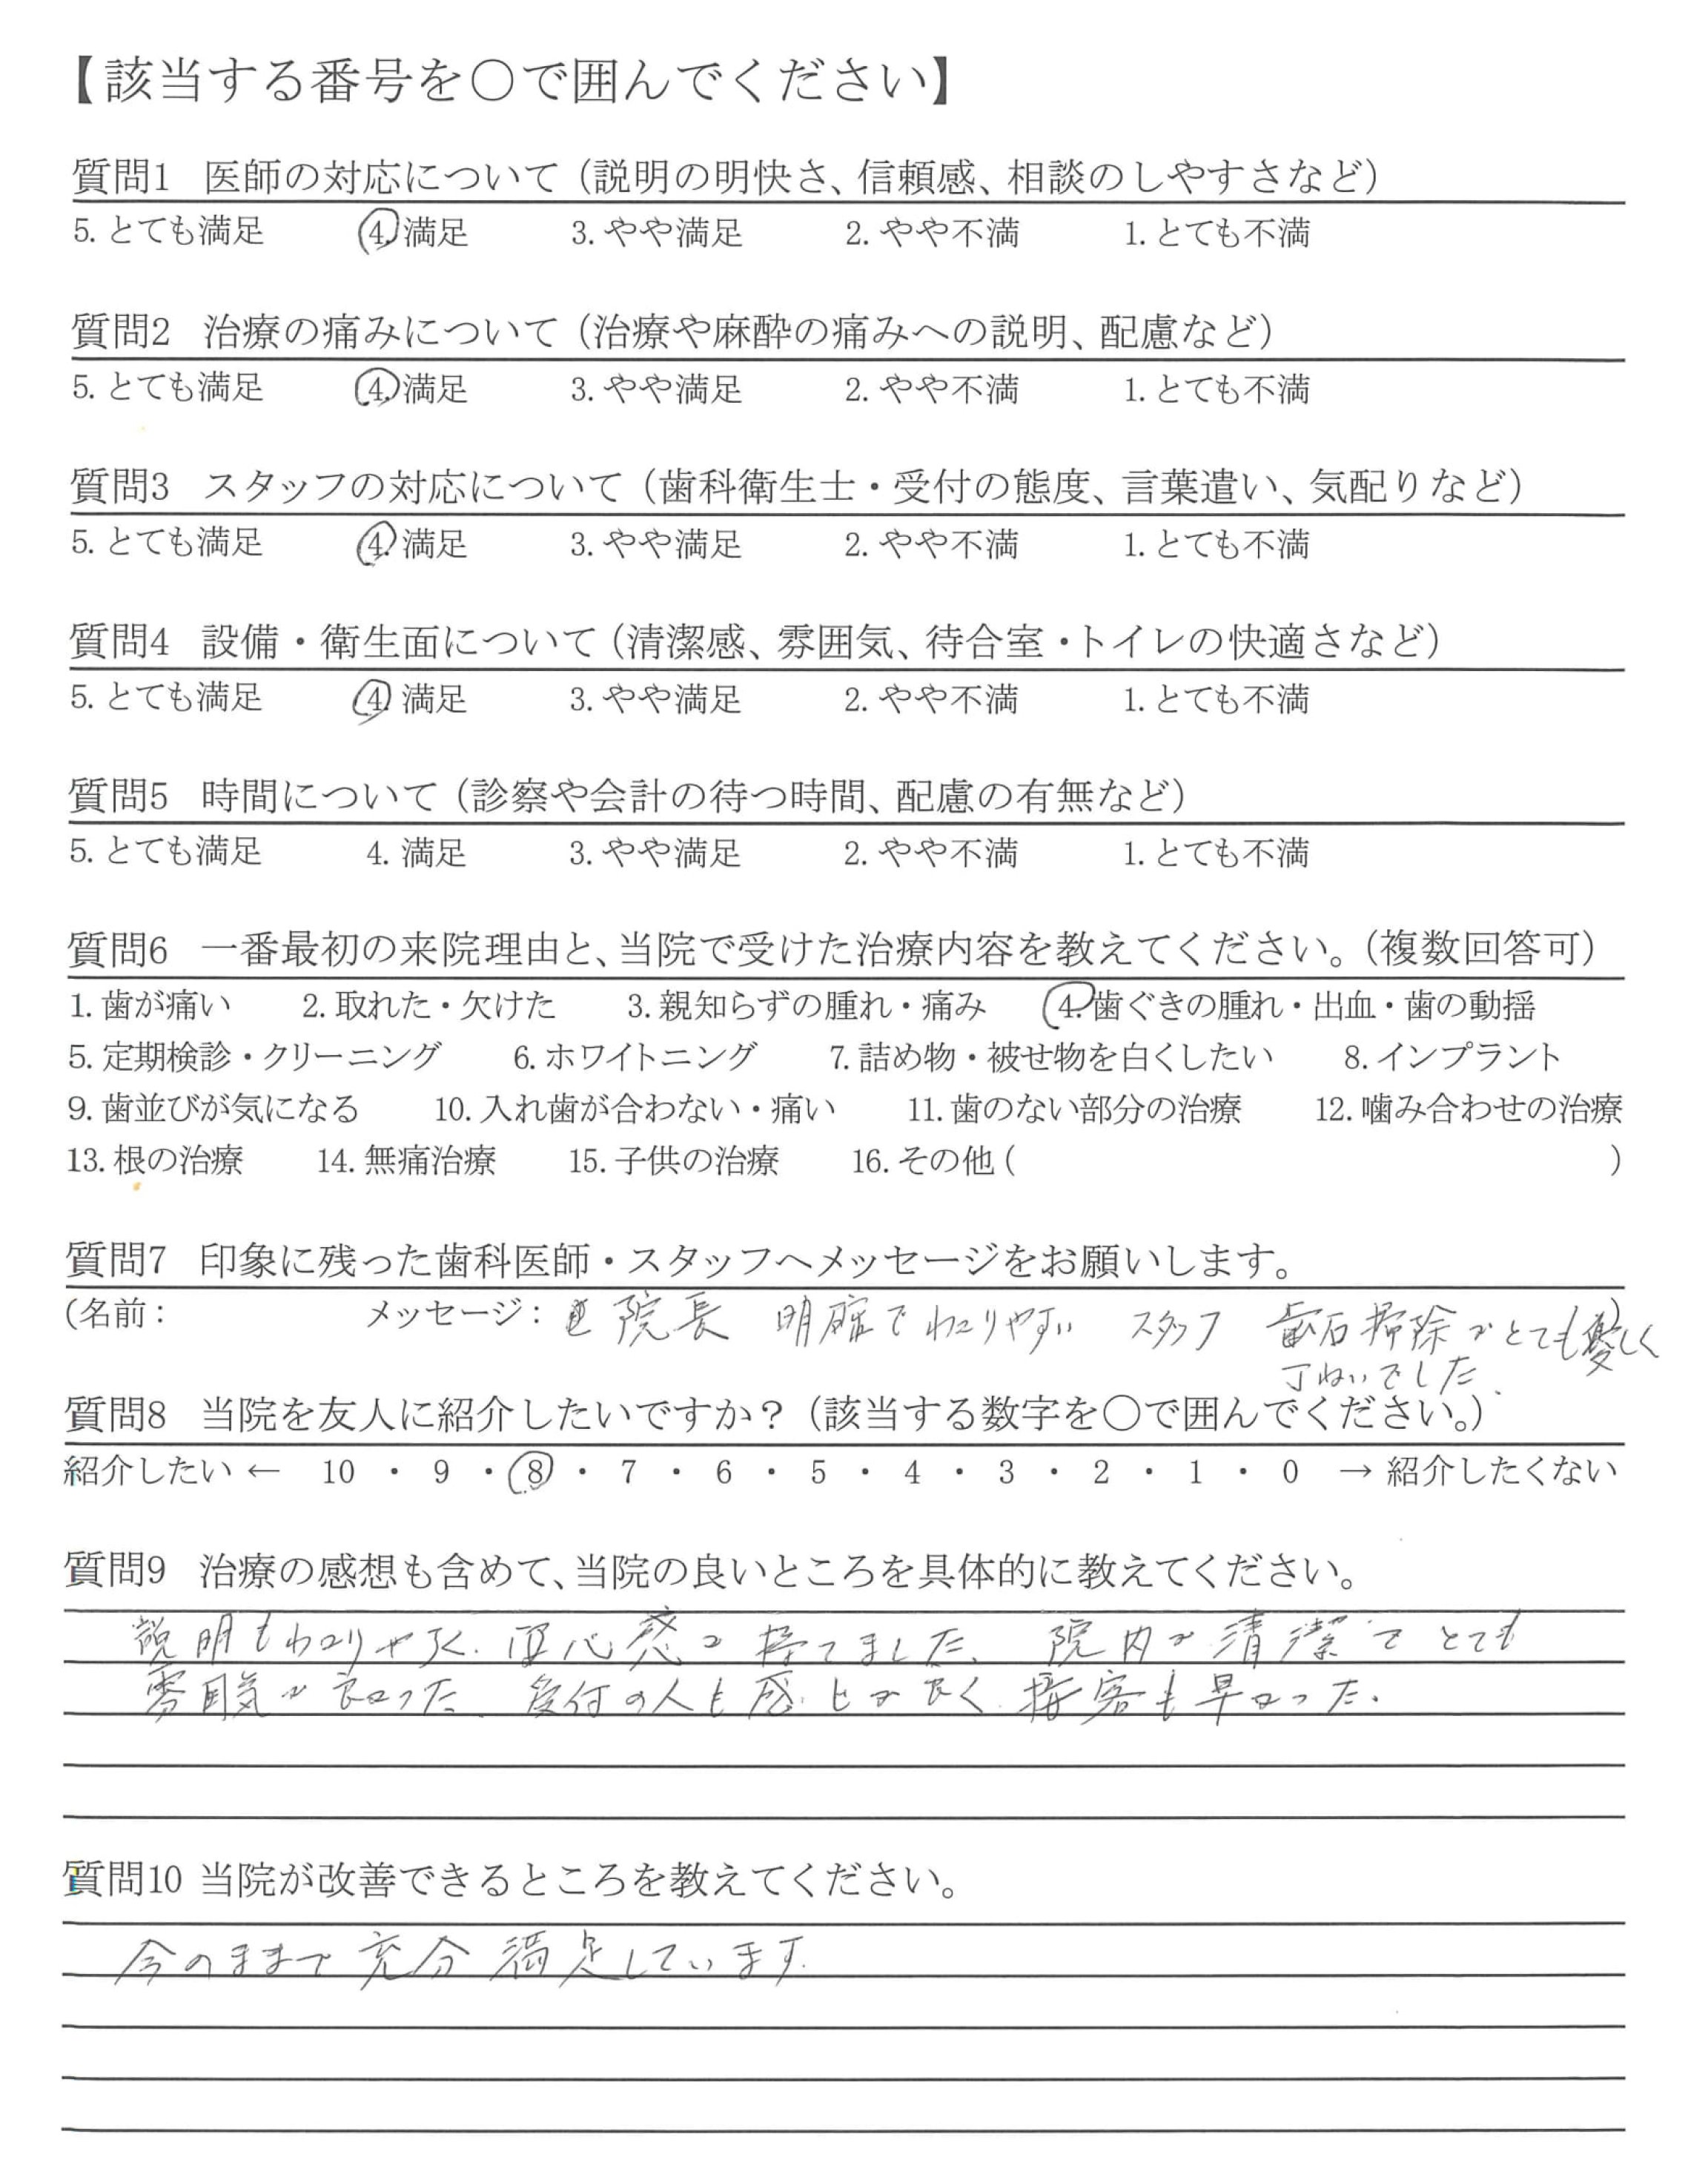 【該当する番号を〇で囲んでください】
質問1 医師の対応について（説明の明快さ、信頼感、相談のしやすさなど）
5. とても満足 4. 満足 3. やや満足 2. やや不満 1. とても不満
質問2 治療の痛みについて（治療や麻酔の痛みへの説明、配慮など）
5. とても満足 4. 満足 3. やや満足 2. やや不満 1. とても不満
質問3 スタッフの対応について（歯科衛生士・受付の態度、言葉遣い、気配りなど）
5. とても満足 4. 満足 3. やや満足 2. やや不満 1. とても不満
質問4 設備・衛生面について（清潔感、雰囲気、待合室・トイレの快適さなど）
5. とても満足 4. 満足 3. やや満足 2. やや不満 1. とても不満
質問5 時間について（診察や会計の待つ時間、配慮の有無など）
5. とても満足 4. 満足 3. やや満足 2. やや不満 1. とても不満
質問6 一番最初の来院理由と、当院で受けた治療内容を教えてください。（複数回答可）
1. 歯が痛い 2. 取れた・欠けた 3. 親知らずの腫れ・痛み 4. 歯ぐきの腫れ・出血・歯の動揺
5. 定期検診・クリーニング 6. ホワイトニング 7. 詰め物・被せ物を白くしたい 8. インプラント
9. 歯並びが気になる 10. 入れ歯が合わない・痛い 11. 歯のない部分の治療 12. 噛み合わせの治療
13. 根の治療 14. 無痛治療 15. 子供の治療 16. その他（ ）
質問7 印象に残った歯科医師・スタッフへメッセージをお願いします。
（名前： メッセージ： 院長 明確でわかりやすい スタッフ 歯石掃除がとても優しく）
丁ねいでした.
質問8 当院を友人に紹介したいですか？（該当する数字を〇で囲んでください。）
紹介したい ← 10 ・ 9 ・ 8 ・ 7 ・ 6 ・ 5 ・ 4 ・ 3 ・ 2 ・ 1 ・ 0 → 紹介したくない
質問9 治療の感想も含めて、当院の良いところを具体的に教えてください。
説明もわかりやすく、心感が持てました、院内が清潔でとても
雰囲気が良かった、受付の人も感じが良く、接客も早かった.
質問10 当院が改善できるところを教えてください。
今のままで充分満足しています.